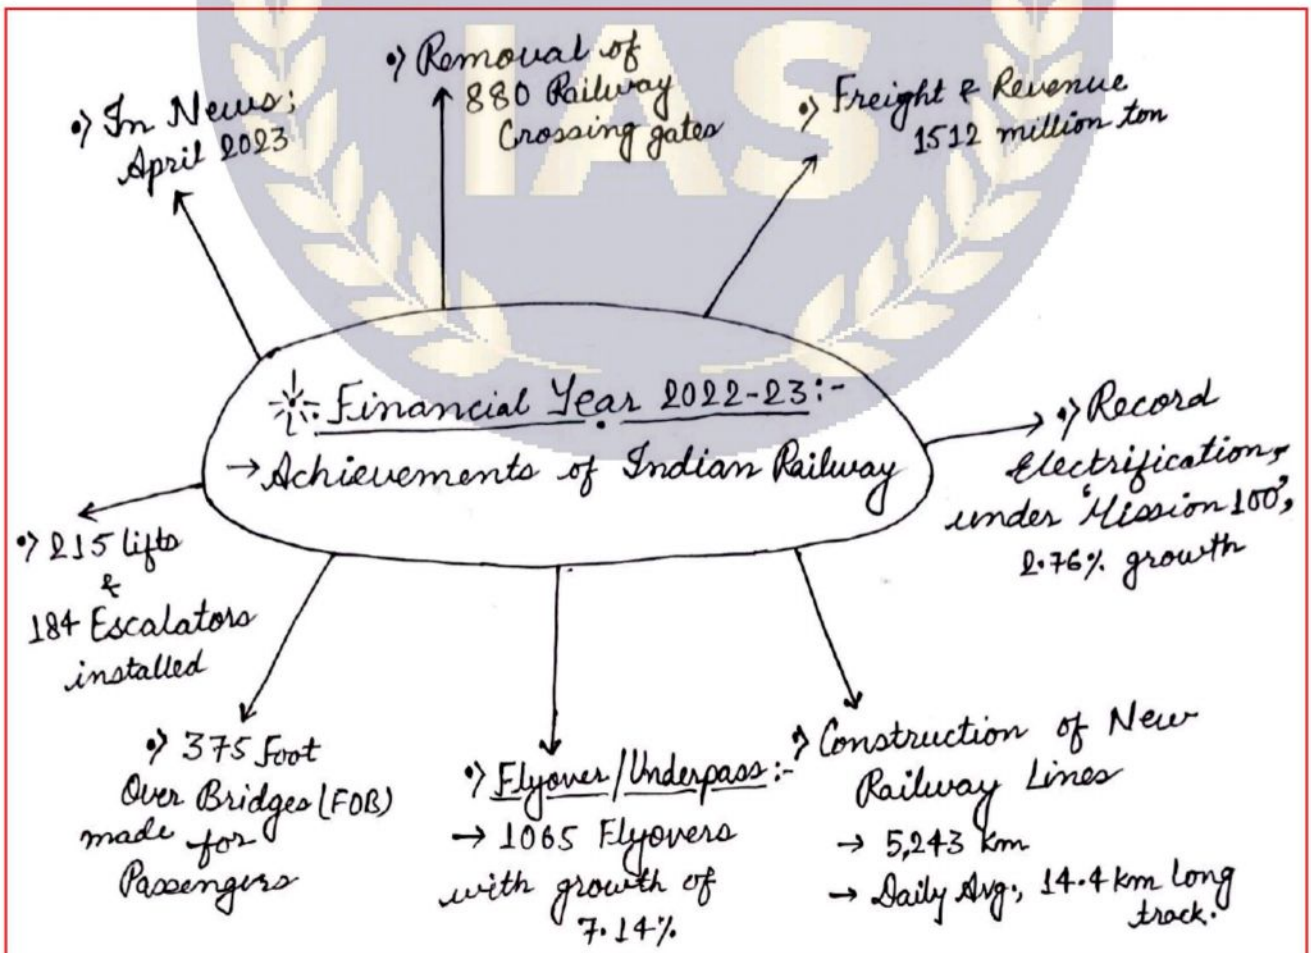 IAS
•) In News:
April 2023
•) Removal of
880 Railway
Crossing gates
•) Freight & Revenue
1512 million ton
Financial Year 2022-23:-
→ Achievements of Indian Railway
•) Record
Electrification,
under 'Mission 100',
2.76% growth
•) 215 lifts
&
184 Escalators
installed
•) 375 Foot
Over Bridges (FOB)
made for
Passengers
•) Flyover/Underpass:-
→ 1065 Flyovers
with growth of
7.14%
•) Construction of New
Railway Lines
→ 5,243 km
→ Daily Avg., 14.4 km long
track.